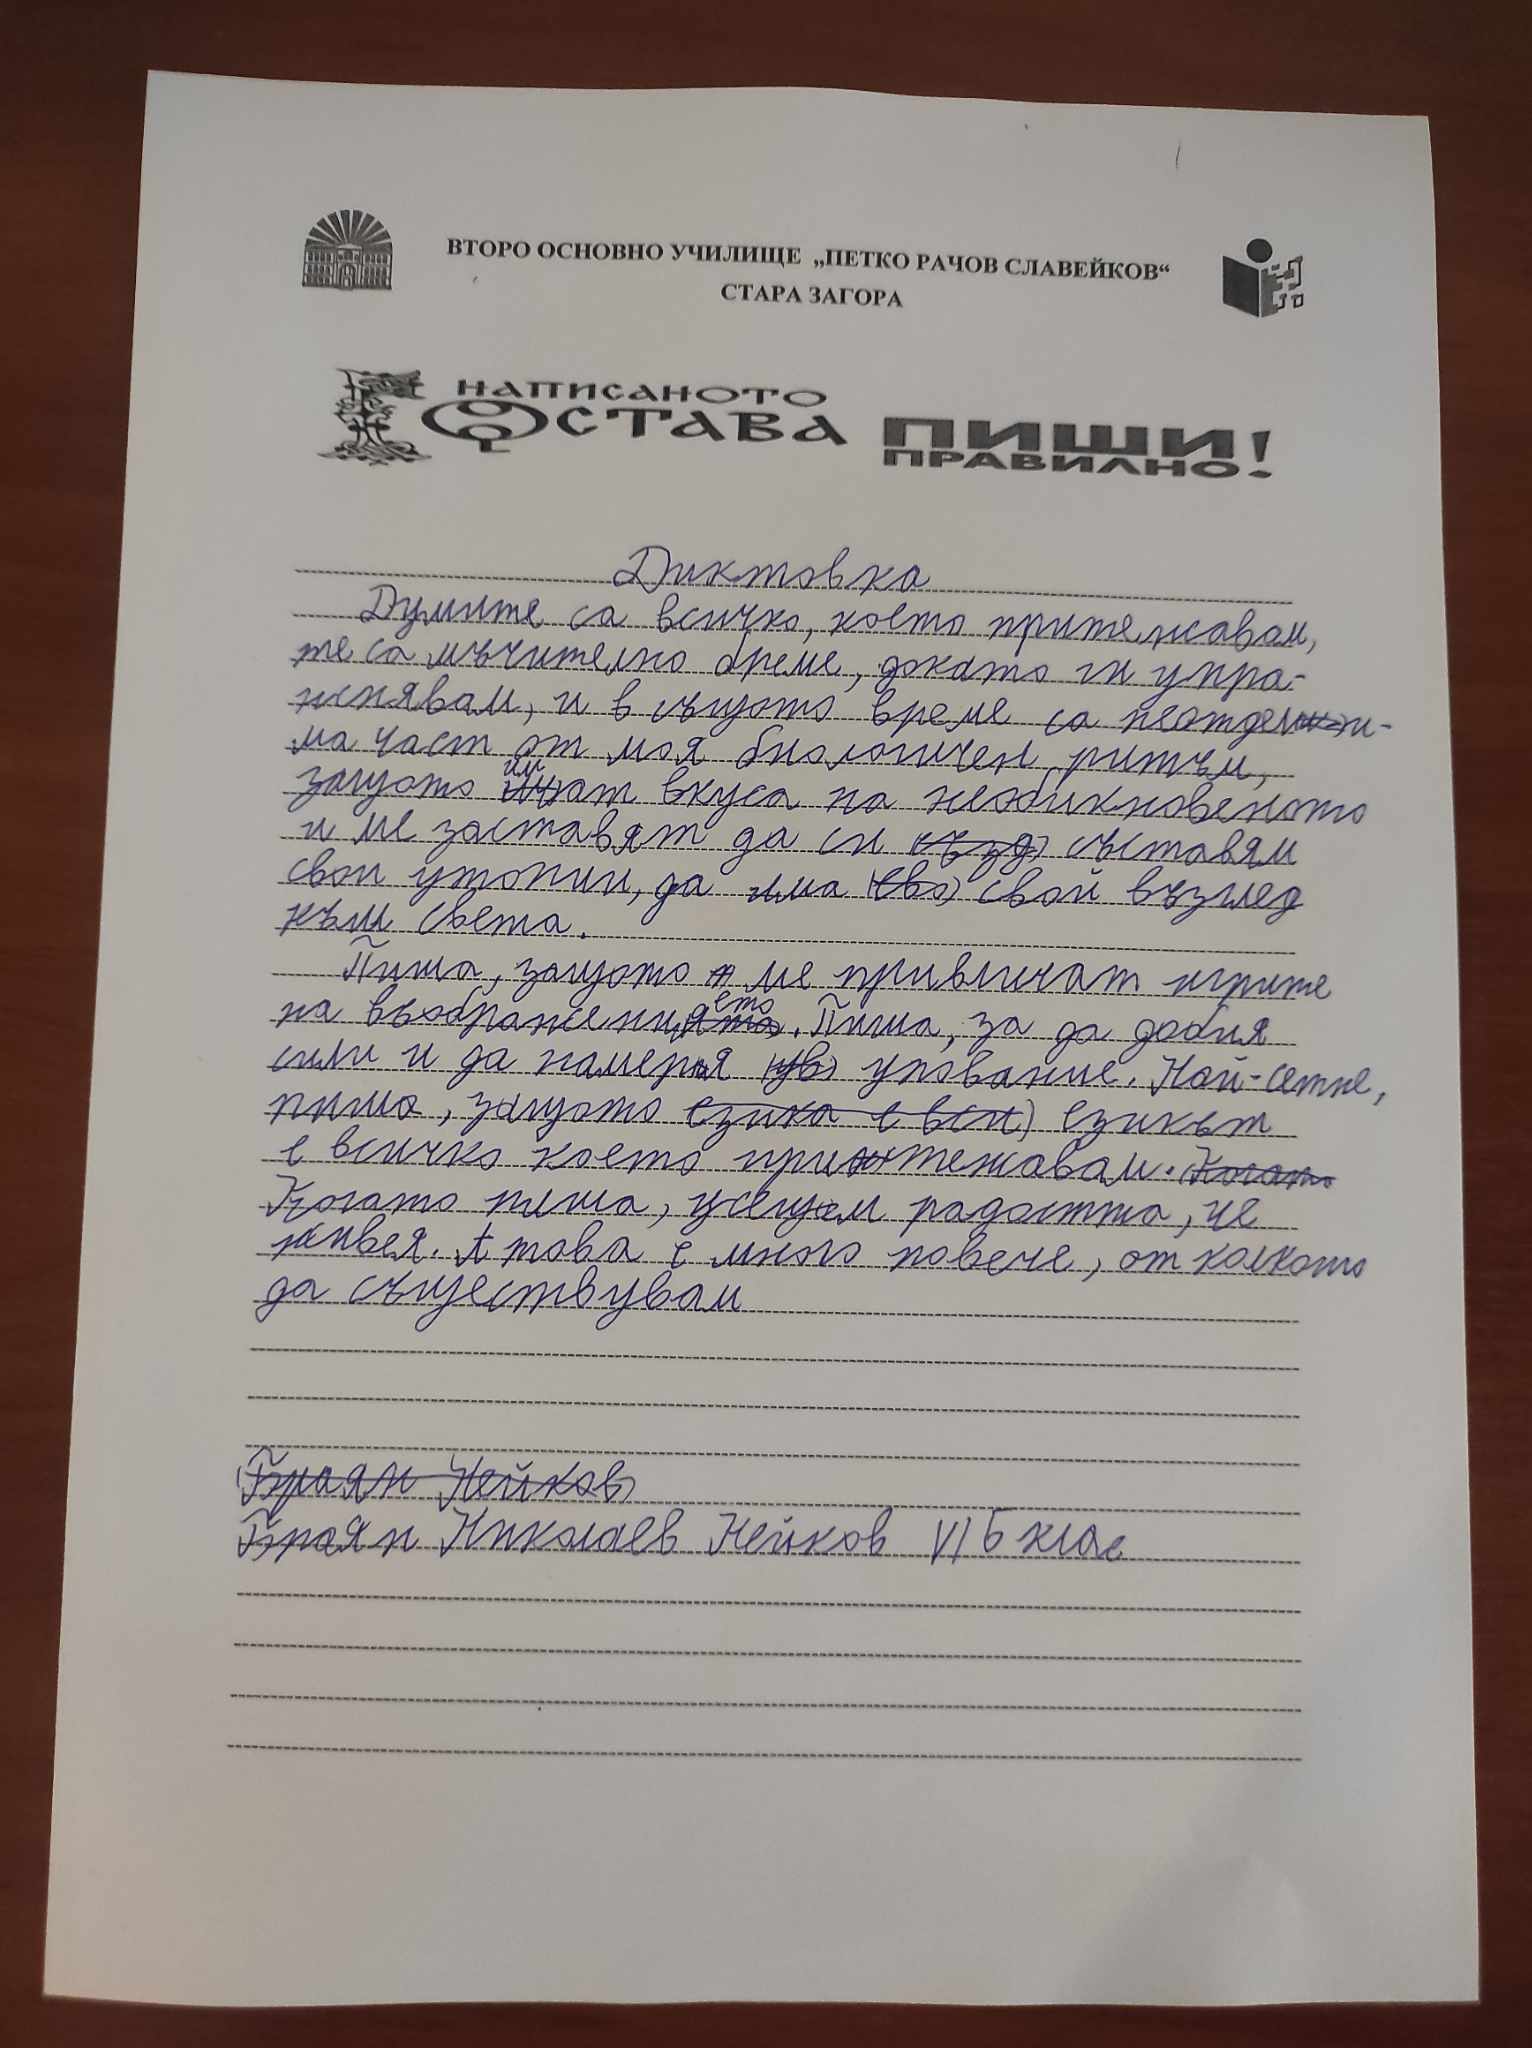 ВТОРО ОСНОВНО УЧИЛИЩЕ „ПЕТКО РАЧОВ СЛАВЕЙКОВ“
СТАРА ЗАГОРА
НАПИСАНОТО
ОСТАВА
ПИШИ
ПРАВИЛНО!
Диктовка
Думите са всичко, което притежавам,
те са мъчително бреме, докато ги упра-
жнявам, и в същото време са неотдели-
ма част от моя биологичен ритъм,
защото имат вкуса на необикновеното
и ме заставят да си съставям
свои утопии, да има свой възглед
към света.
Пиша, защото ме привличат игрите
на въображението. Пиша, за да добия
сили и да намеря упование. Най-сетне,
пиша, защото езика е вси езикът
е всичко което притежавам. Когато
Когато пиша, усещам радостта, че
живея. А това е много повече, от колкото
да съществувам
Браян Нейков
Браян Николаев Нейков VI Б клас